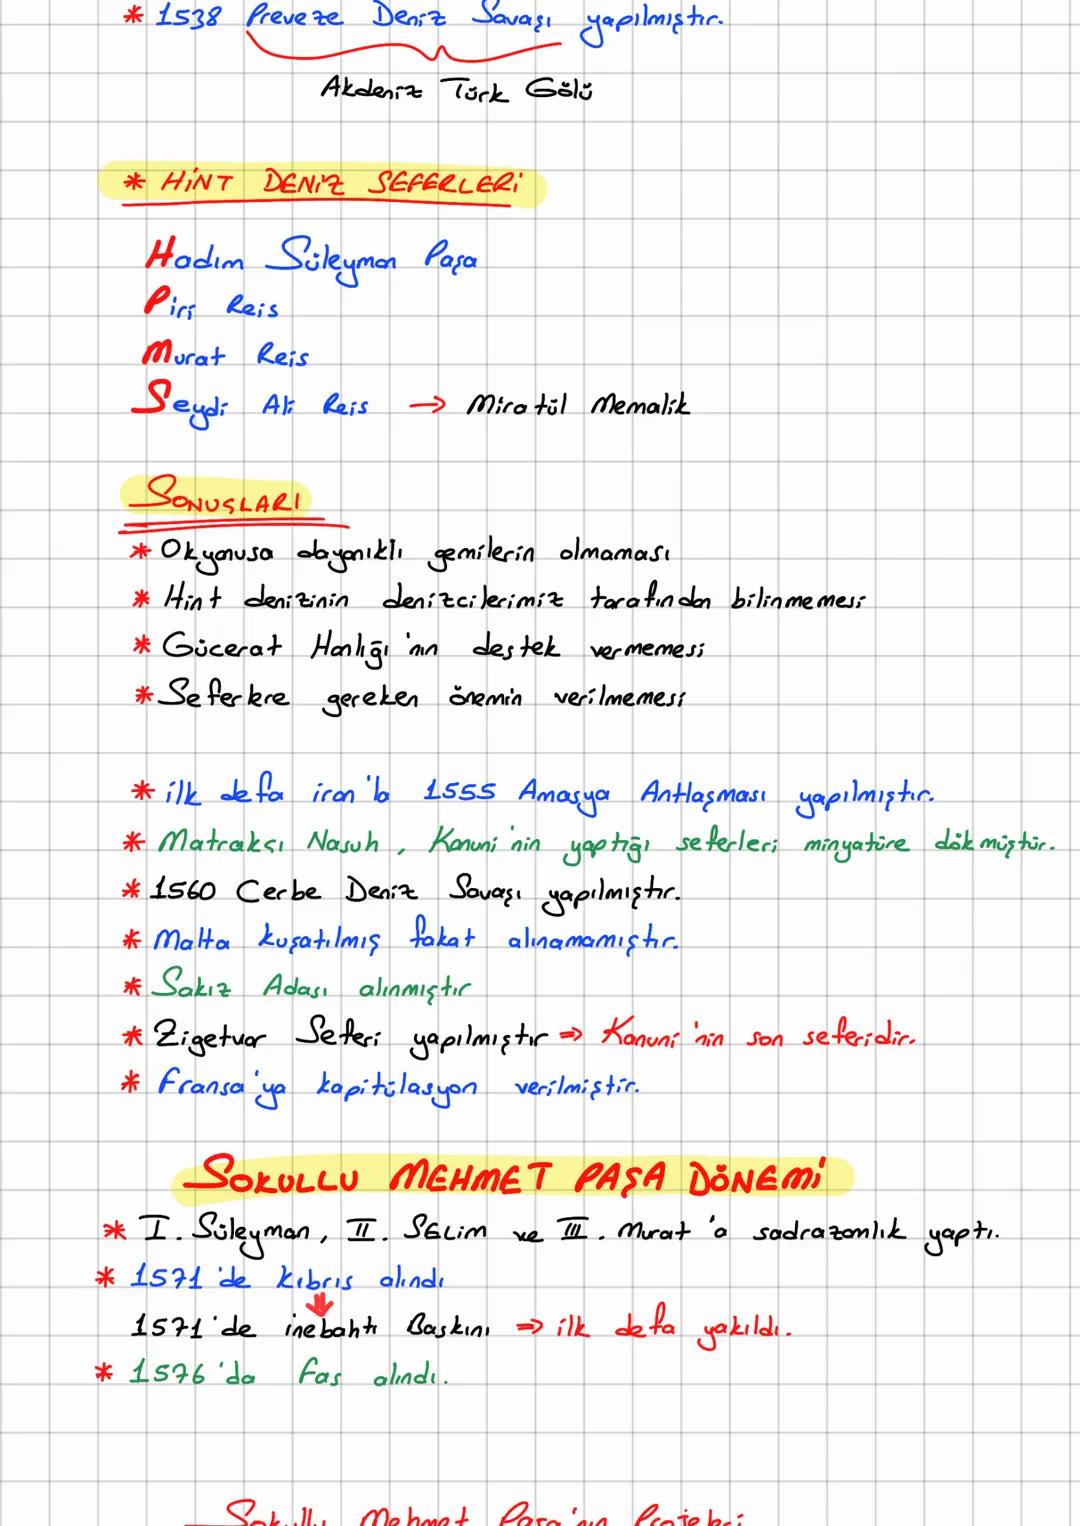 * 1538 Preveze Deniz Savaşı yapılmıştır.
Akdeniz Türk Gölü
* HİNT DENİZ SEFERLERİ
Hadım Süleyman Paşa
Piri Reis
Murat Reis
Seydi Ali Reis → Miratül Memalik
SONUÇLARI
* Okyanusa dayanıklı gemilerin olmaması
* Hint denizinin denizcilerimiz tarafından bilinmemesi
* Gücerat Hanlığı'nın destek vermemesi
* Seferlere gereken önemin verilmemesi
* ilk defa iran'la 1555 Amasya Antlaşması yapılmıştır.
* Matrakçı Nasuh, Kanuni'nin yaptığı seferleri minyatüre dökmüştür.
* 1560 Cerbe Deniz Savaşı yapılmıştır.
* Malta kuşatılmış fakat alınamamıştır.
* Sakız Adası alınmıştır
* Zigetvar Seferi yapılmıştır ⇒ Kanuni'nin son seferidir.
* Fransa'ya kapitülasyon verilmiştir.
SOKULLU MEHMET PAŞA DÖNEMİ
* I. Süleyman, II. SELİM ve III. Murat'a sadrazamlık yaptı.
* 1571'de kıbrıs alındı
1571'de inebahtı Baskını ⇒ ilk defa yakıldı.
* 1576'da Fas alındı.
Sokullu Mehmet Paşa'nın Projeleri